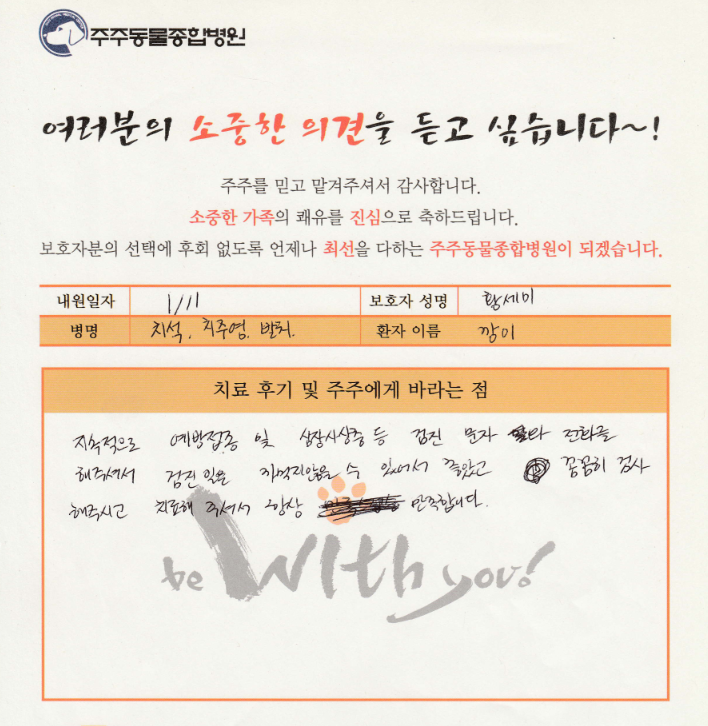 주주동물종합병원
여러분의 소중한 의견을 듣고 싶습니다~!
주주를 믿고 맡겨주셔서 감사합니다.
소중한 가족의 쾌유를 진심으로 축하드립니다.
보호자분의 선택에 후회 없도록 언제나 최선을 다하는 주주동물종합병원이 되겠습니다.
내원일자 1/11 보호자 성명 황세미
병명 치석, 치주염, 발치. 환자 이름 깡이
치료 후기 및 주주에게 바라는 점
지속적으로 예방접종 및 심장사상충 등 검진 문자와 전화를
해주셔서 검진일을 까먹지않을 수 있어서 좋았고 꼼꼼히 검사
해주시고 치료해 주셔서 항상 만족합니다.
be With you!